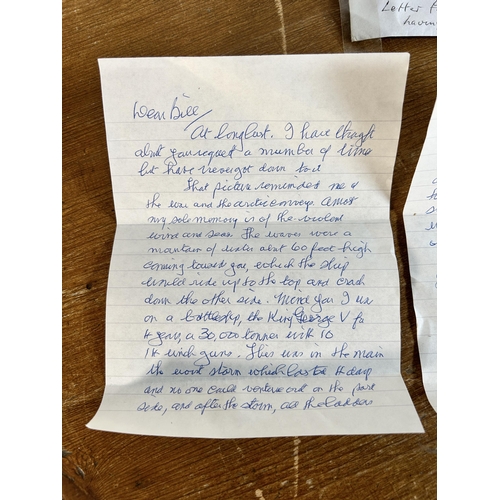 Letter f
havin
Dear Bill
At long last. I have thought
abt your request a number of times
but have never got down to it
That picture reminded me of
the war and the arctic convoys. Almost
my sole memory is of the violent
wind and seas. The waves were a
mountain of water abt 60 foot high
coming toward you, which the ship
would ride up to the top and crash
down the other side. Mind you I was
on a battleship, the King George V for
4 years, a 30,000 tonner with 10
14 inch guns. This was in the main
the worst storm which lasted 4 days
and no one could venture out on the port
side, and after the storm, all the ladders